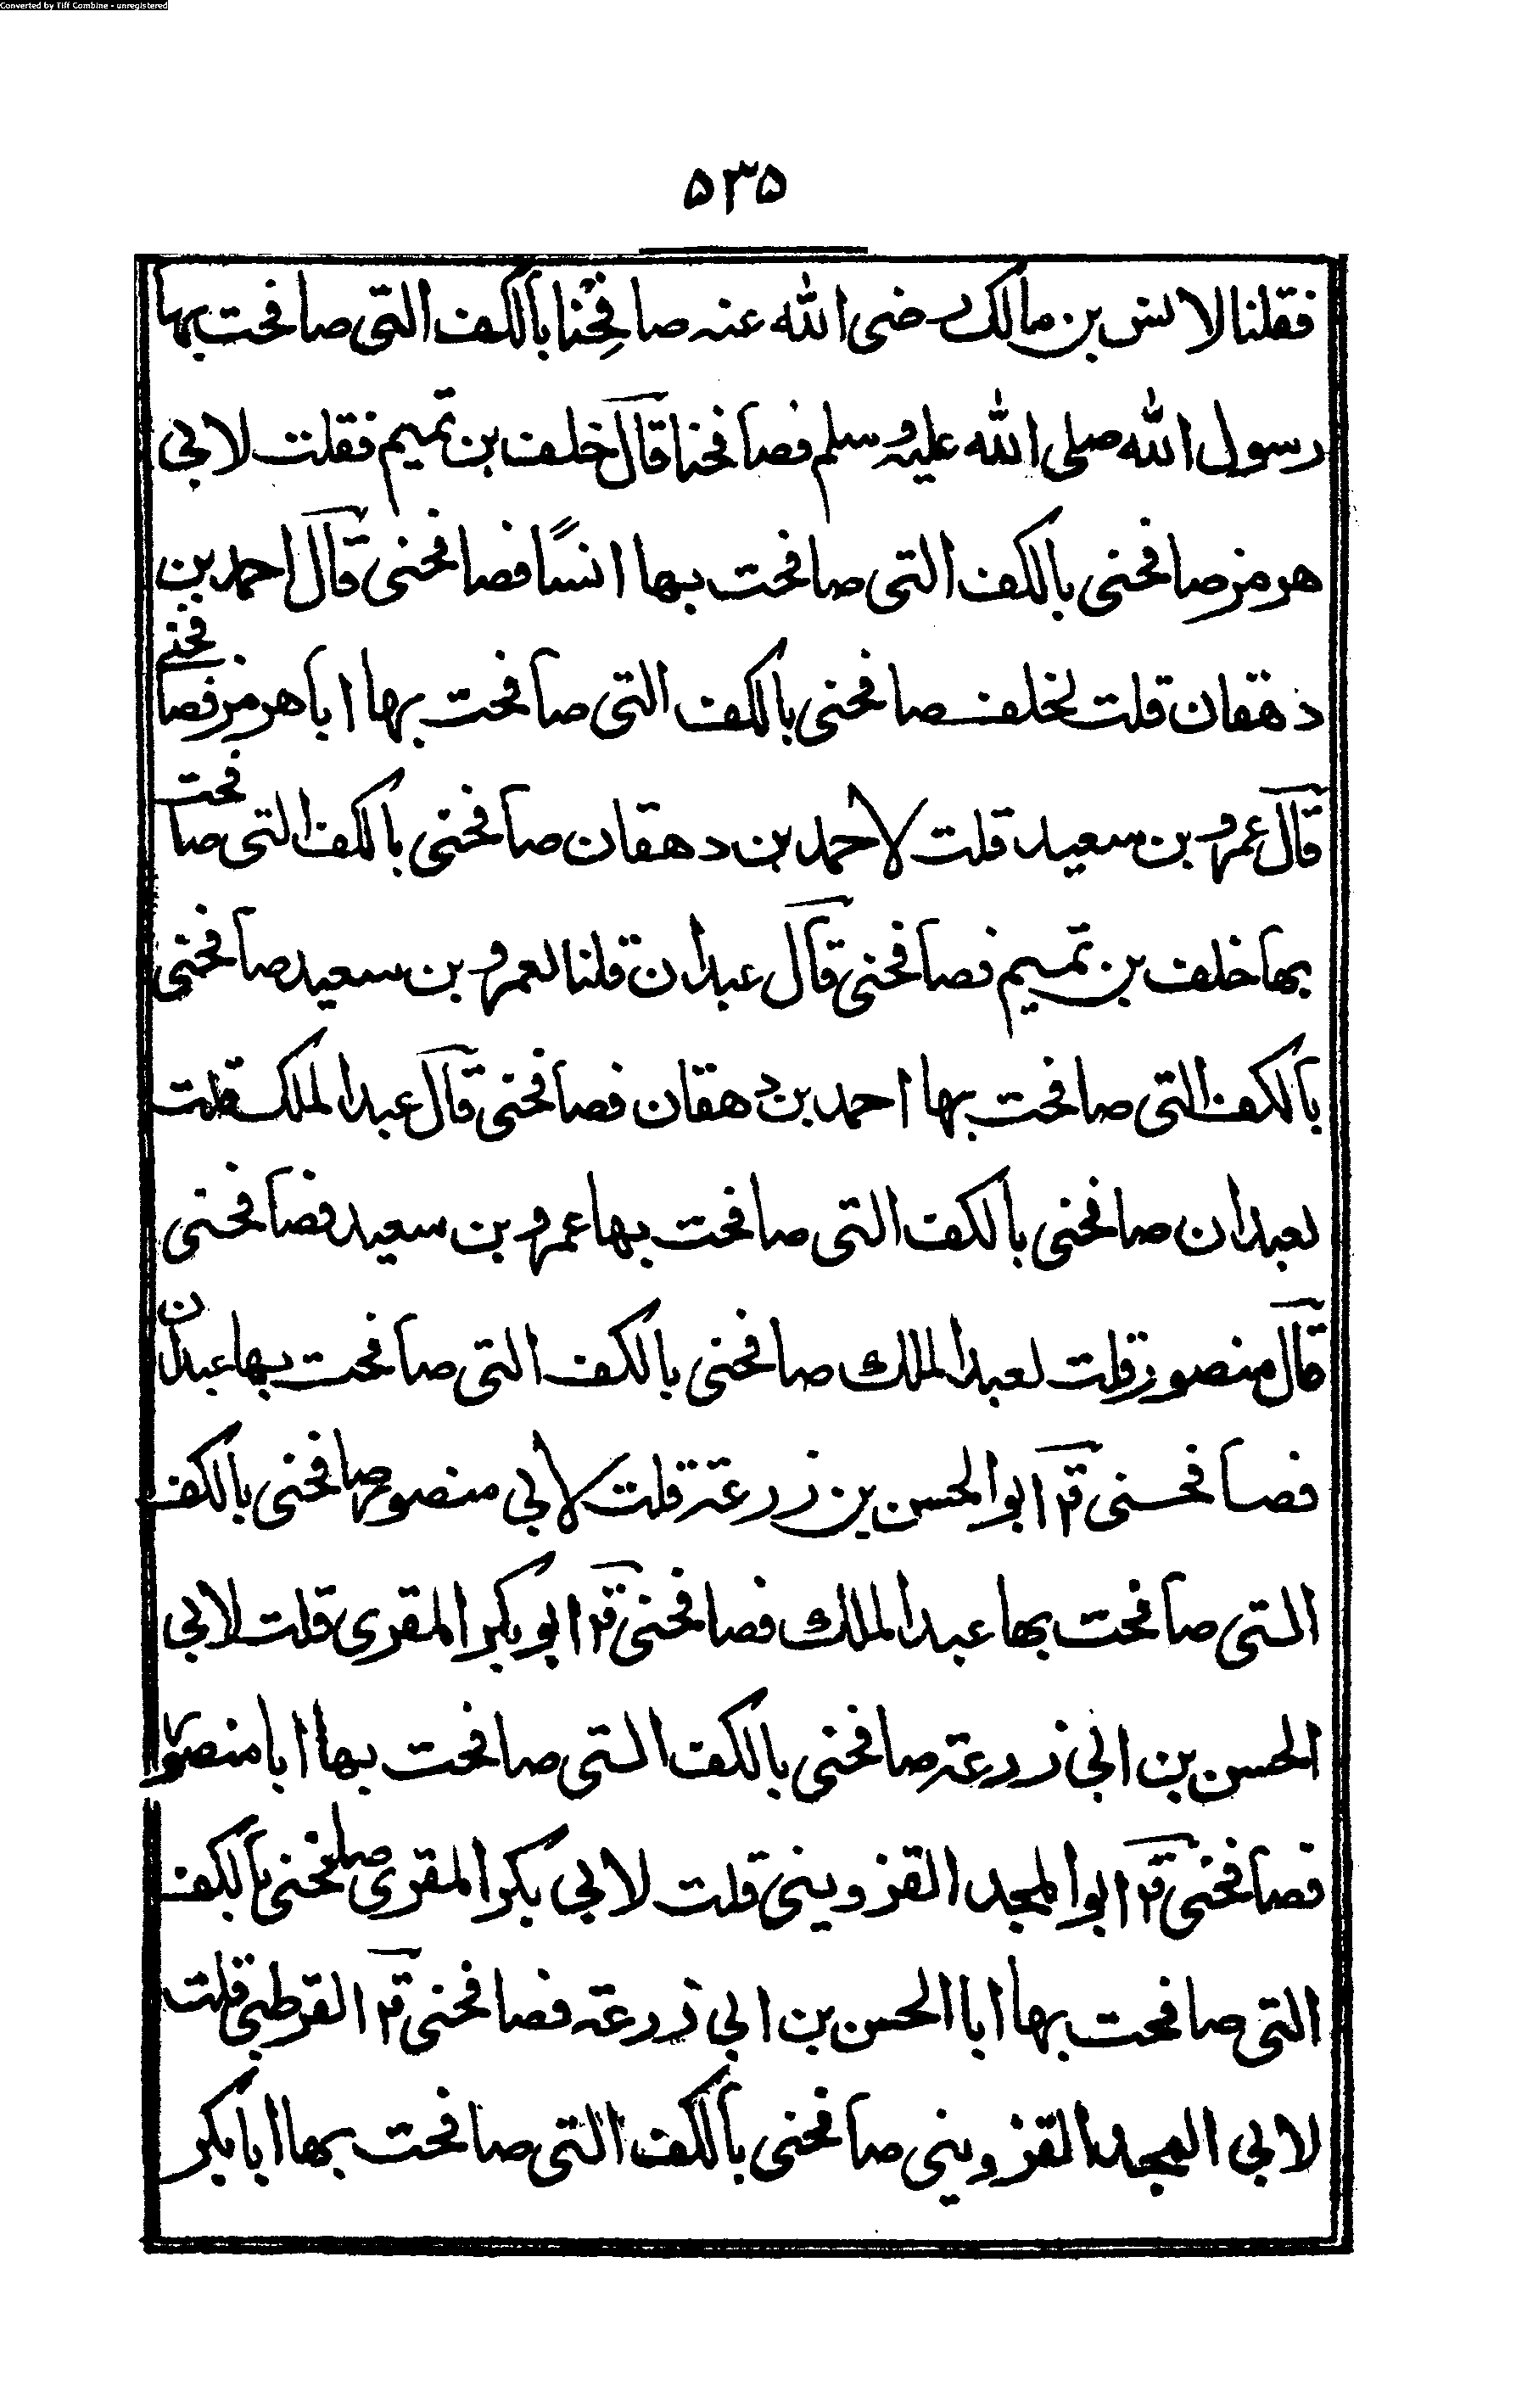 Converted by Tiff Combine - unregistered
۵۳۵
فقلنا لانس بن مالك رضى الله عنه صافِحْنا بالكف التى صافحت بها
رسول الله صلى الله عليه وسلم فصافحنا قال خلف بن تميم فقلت لابى
هرمز صافحنى بالكف التى صافحت بها انسًا فصافحنى قال احمد بن
دهقان قلت لخلف صافحنى بالكف التى صافحت بها ابا هرمز فصافحنى
قال عمرو بن سعيد قلت لاحمد بن دهقان صافحنى بالكف التى صافحت
بها خلف بن تميم فصافحنى قال عبدان قلنا لعمرو بن سعيد صافحنى
بالكف التى صافحت بها احمد بن دهقان فصافحنى قال عبد الملك قلت
لعبدان صافحنى بالكف التى صافحت بها عمرو بن سعيد فصافحنى
قال منصور قلت لعبد الملك صافحنى بالكف التى صافحت بها عبدان
فصافحنى قال ابو الحسن بن زرعة قلت لابى منصور صافحنى بالكف
التى صافحت بها عبد الملك فصافحنى قال ابو بكر المقرى قلت لابى
الحسن بن ابى زرعة صافحنى بالكف التى صافحت بها ابا منصور
فصافحنى قال ابو المجد القزوينى قلت لابى بكر المقرى صافحنى بالكف
التى صافحت بها ابا الحسن بن ابى زرعة فصافحنى قال القرطبى قلت
لابى المجد القزوينى صافحنى بالكف التى صافحت بها ابا بكر